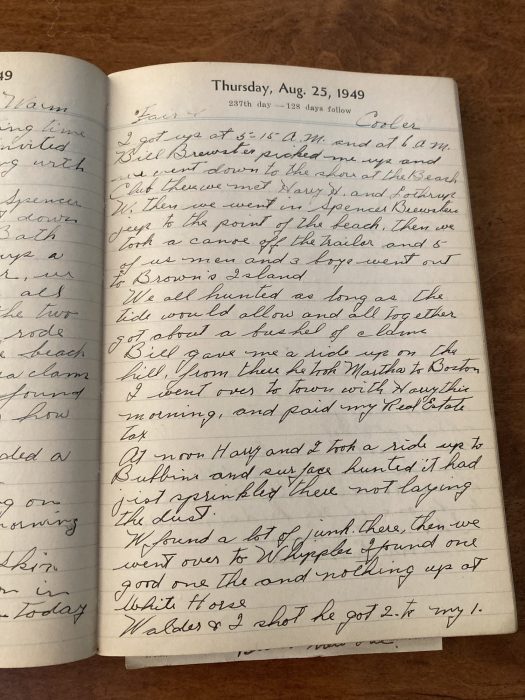 49
Warm
ing time
invited
ng with
Spencer
t down
Bath
ays a
r, ur
all
the two
rode
e beach
sea clams
found
how
ded a
ng on
morning
skin
n in
today
Thursday, Aug. 25, 1949
237th day—128 days follow
Fair Cooler
I got up at 5-15 A.M. and at 6 A.M.
Bill Brewster picked me up and
we went down to the shore at the Beach
Club there we met Harry H. and Lothrup
W. then we went in Spencer Brewsters
jeep to the point of the beach, then we
took a canoe off the trailer and 5
of us men and 3 boys went out
to Brown's Island
We all hunted as long as the
tide would allow and all together
got about a bushel of clams
Bill gave me a ride up on the
hill, from there he took Martha to Boston
I went over to town with Harry this
morning, and paid my Real Estate
tax
At noon Harry and I took a ride up to
Bubbins and surface hunted it had
jist sprinkled there not laying
the dust.
W. found a lot of junk there, then we
went over to Whipples I found one
good one the and nothing up at
White Horse
Walder & I shot he got 2 to my 1.